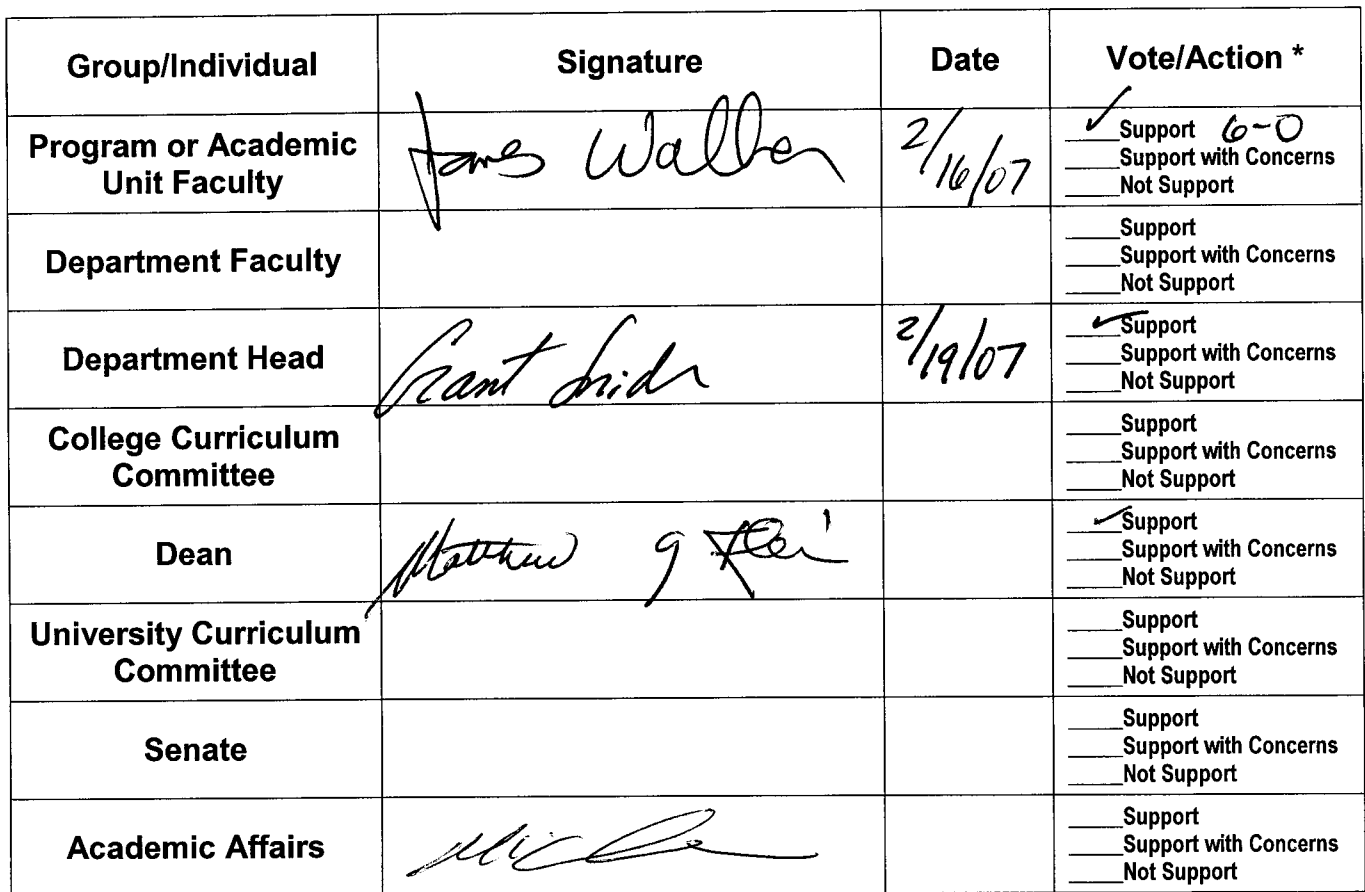 Group/Individual Signature Date Vote/Action *
Program or Academic
Unit Faculty
James Walker
2/16/07
✓ Support 6-0
Support with Concerns
Not Support
Department Faculty
Support
Support with Concerns
Not Support
Department Head
Grant
2/19/07
✓ Support
Support with Concerns
Not Support
College Curriculum
Committee
Support
Support with Concerns
Not Support
Dean
Matthew
✓ Support
Support with Concerns
Not Support
University Curriculum
Committee
Support
Support with Concerns
Not Support
Senate
Support
Support with Concerns
Not Support
Academic Affairs
Support
Support with Concerns
Not Support